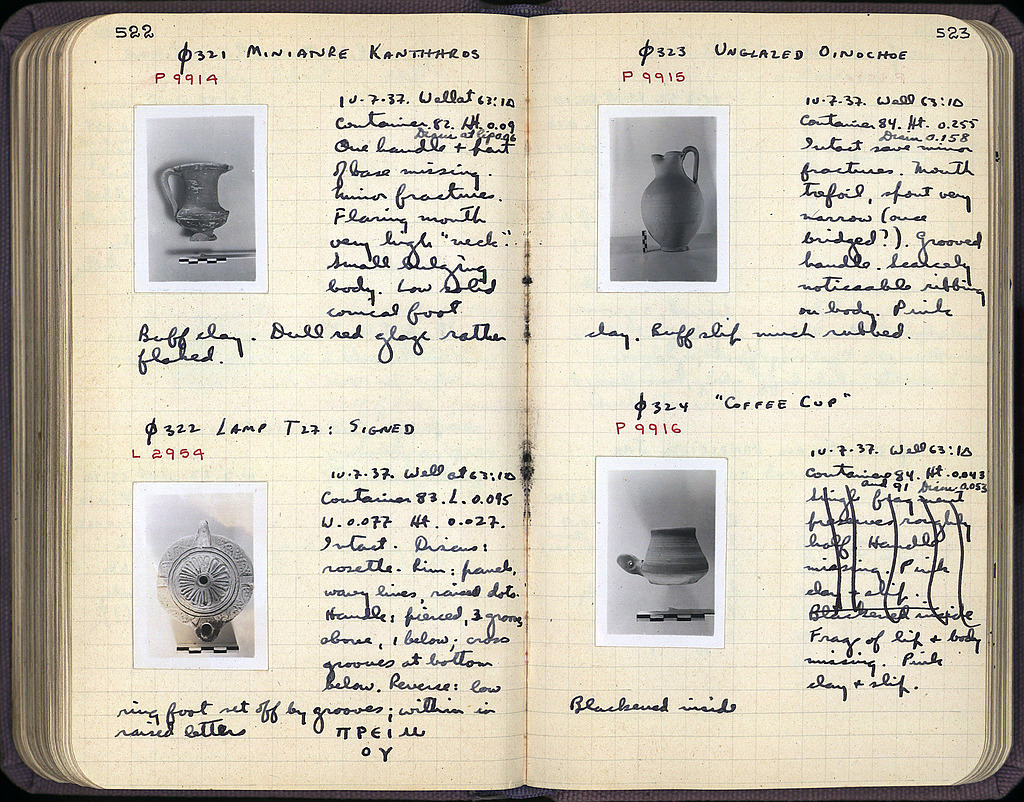 522
φ321 MINIATURE KANTHAROS
P 9914
10-7-37. Well at 63:ΙΔ
Container 82. Ht. 0.09
Diam at lip 0.06
One handle + part
of base missing.
Minor fractures.
Flaring mouth
very high "neck".
Small bulging
body. Low solid
conical foot
Buff clay. Dull red glaze rather
flaked.
φ322 LAMP T27: SIGNED
L 2954
10-7-37. Well at 63:ΙΔ
Container 83. L. 0.095
W. 0.077 Ht. 0.027.
Intact. Discus:
rosette. Rim: panels,
wavy lines, raised dots.
Handle; pierced, 3 grooves
above, 1 below; cross
grooves at bottom
below. Reverse: low
ring foot set off by grooves; within in
raised letters ΠΡΕΙΜ
ΟΥ
523
φ323 UNGLAZED OINOCHOE
P 9915
10-7-37. Well 63:ΙΔ
Container 84. Ht. 0.255
Diam 0.158
Intact save minor
fractures. Mouth
trefoil, spout very
narrow (once
bridged?). Grooved
handle. Scarcely
noticeable ribbing
on body. Pink
clay. Buff slip much rubbed.
φ324 "COFFEE CUP"
P 9916
10-7-37. Well 63:ΙΔ
Container 84. Ht. 0.043
and 91 Diam. 0.053
Single fragment
preserves roughly
half. Handle
missing. Pink
clay + slip.
Blackened inside
Frag of lip + body
missing. Pink
clay + slip.
Blackened inside